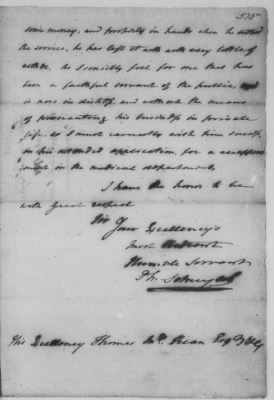 575
some money, and property in hands when he entered
the service, he has left it with very little of
either, I sensibly feel for one that has
been a faithful servant of the public, and
is now in distress and without the means
of prosecuting his business in private
life, & I must earnestly wish him success
in his intended application for a
in the medical department.
I have the honor to be
with Great respect
Sir Your Excellency's
most Obedient
Humble Servant
Ph: Schuyler
His Excellency Thomas McKean Esqr &c